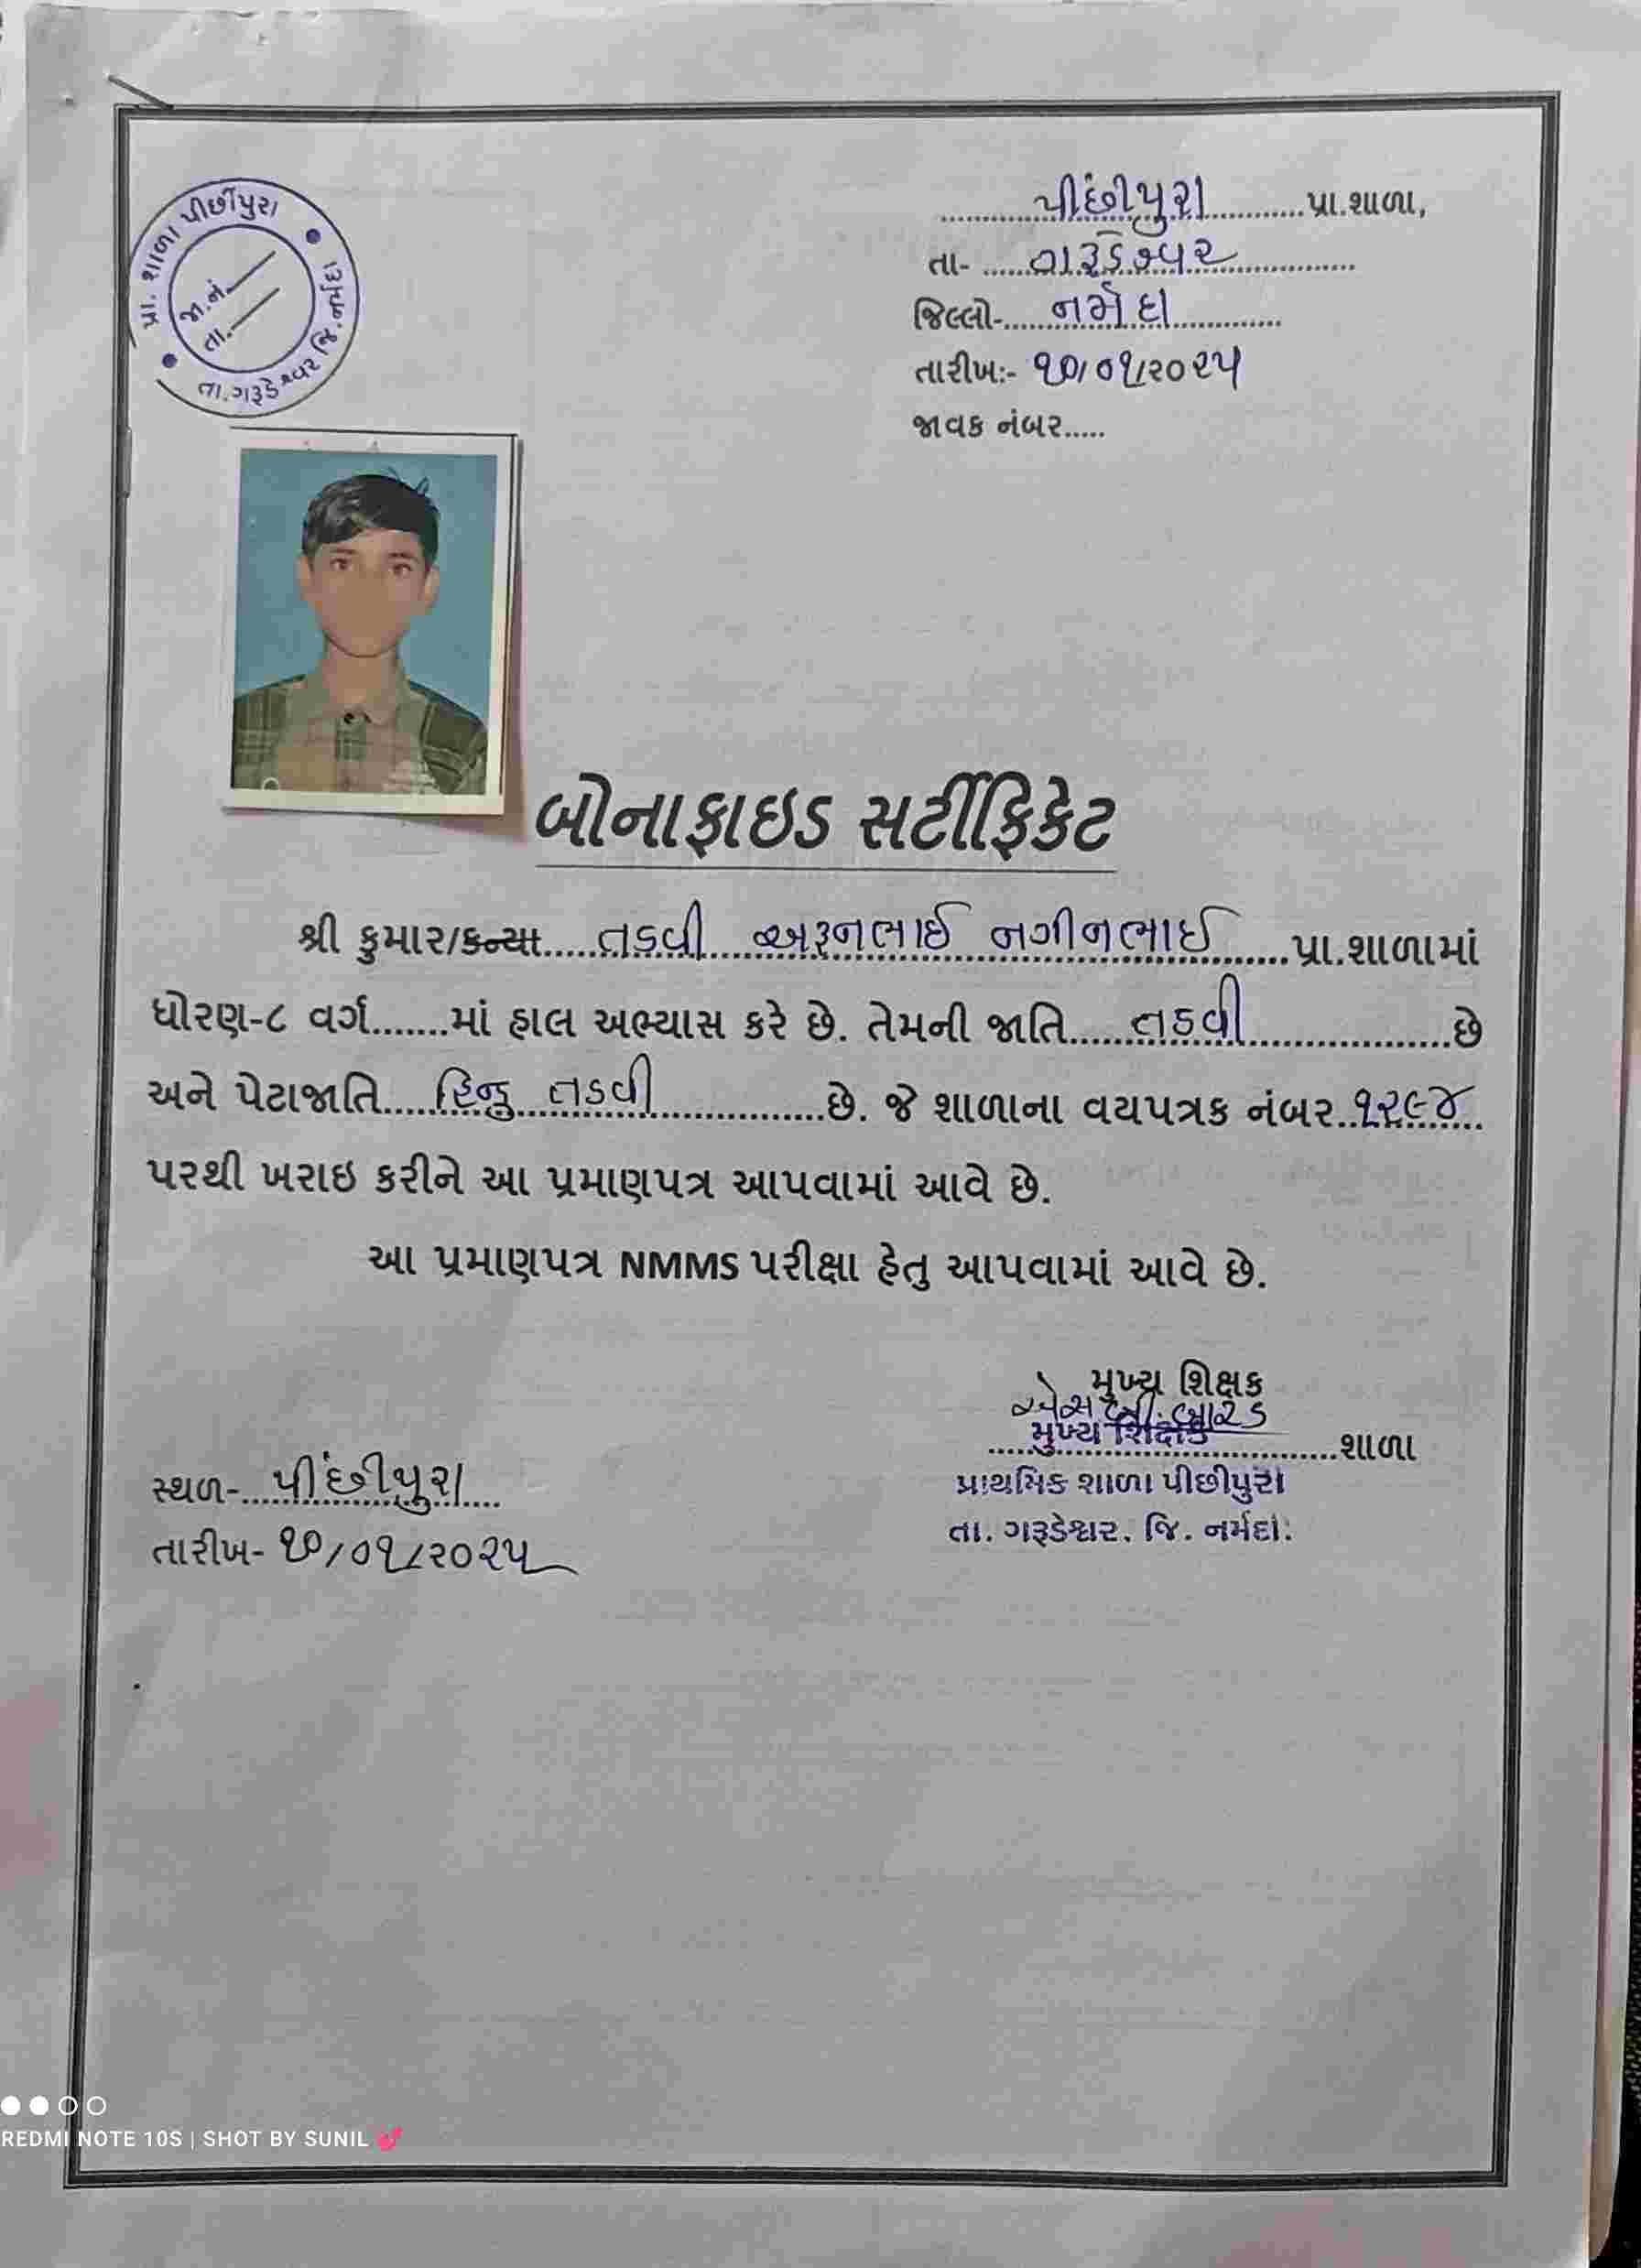 પ્રા. શાળા પીછીપુરા
જા.નં.
તા.
તા.ગરૂડેશ્વર જિ.નર્મદા
પીંછીપુરા પ્રા.શાળા,
તા- ગરૂડેશ્વર
જિલ્લો- નર્મદા
તારીખ:- ૧૭/૦૧/૨૦૨૫
જાવક નંબર.....
બોનાફાઇડ સર્ટીફિકેટ
શ્રી કુમાર/કન્યા....તડવી અરૂનભાઈ નગીનભાઈ....પ્રા.શાળામાં
ધોરણ-૮ વર્ગ.......માં હાલ અભ્યાસ કરે છે. તેમની જાતિ....તડવી....છે
અને પેટાજાતિ....હિન્દુ તડવી....છે. જે શાળાના વયપત્રક નંબર..૧૨૯૪
પરથી ખરાઇ કરીને આ પ્રમાણપત્ર આપવામાં આવે છે.
આ પ્રમાણપત્ર NMMS પરીક્ષા હેતુ આપવામાં આવે છે.
મુખ્ય શિક્ષક
મુખ્ય શિક્ષક
....શાળા
પ્રાથમિક શાળા પીછીપુરા
તા. ગરૂડેશ્વર. જિ. નર્મદા.
સ્થળ-....પીંછીપુરા....
તારીખ- ૧૭/૦૧/૨૦૨૫
REDMI NOTE 10S | SHOT BY SUNIL 💕